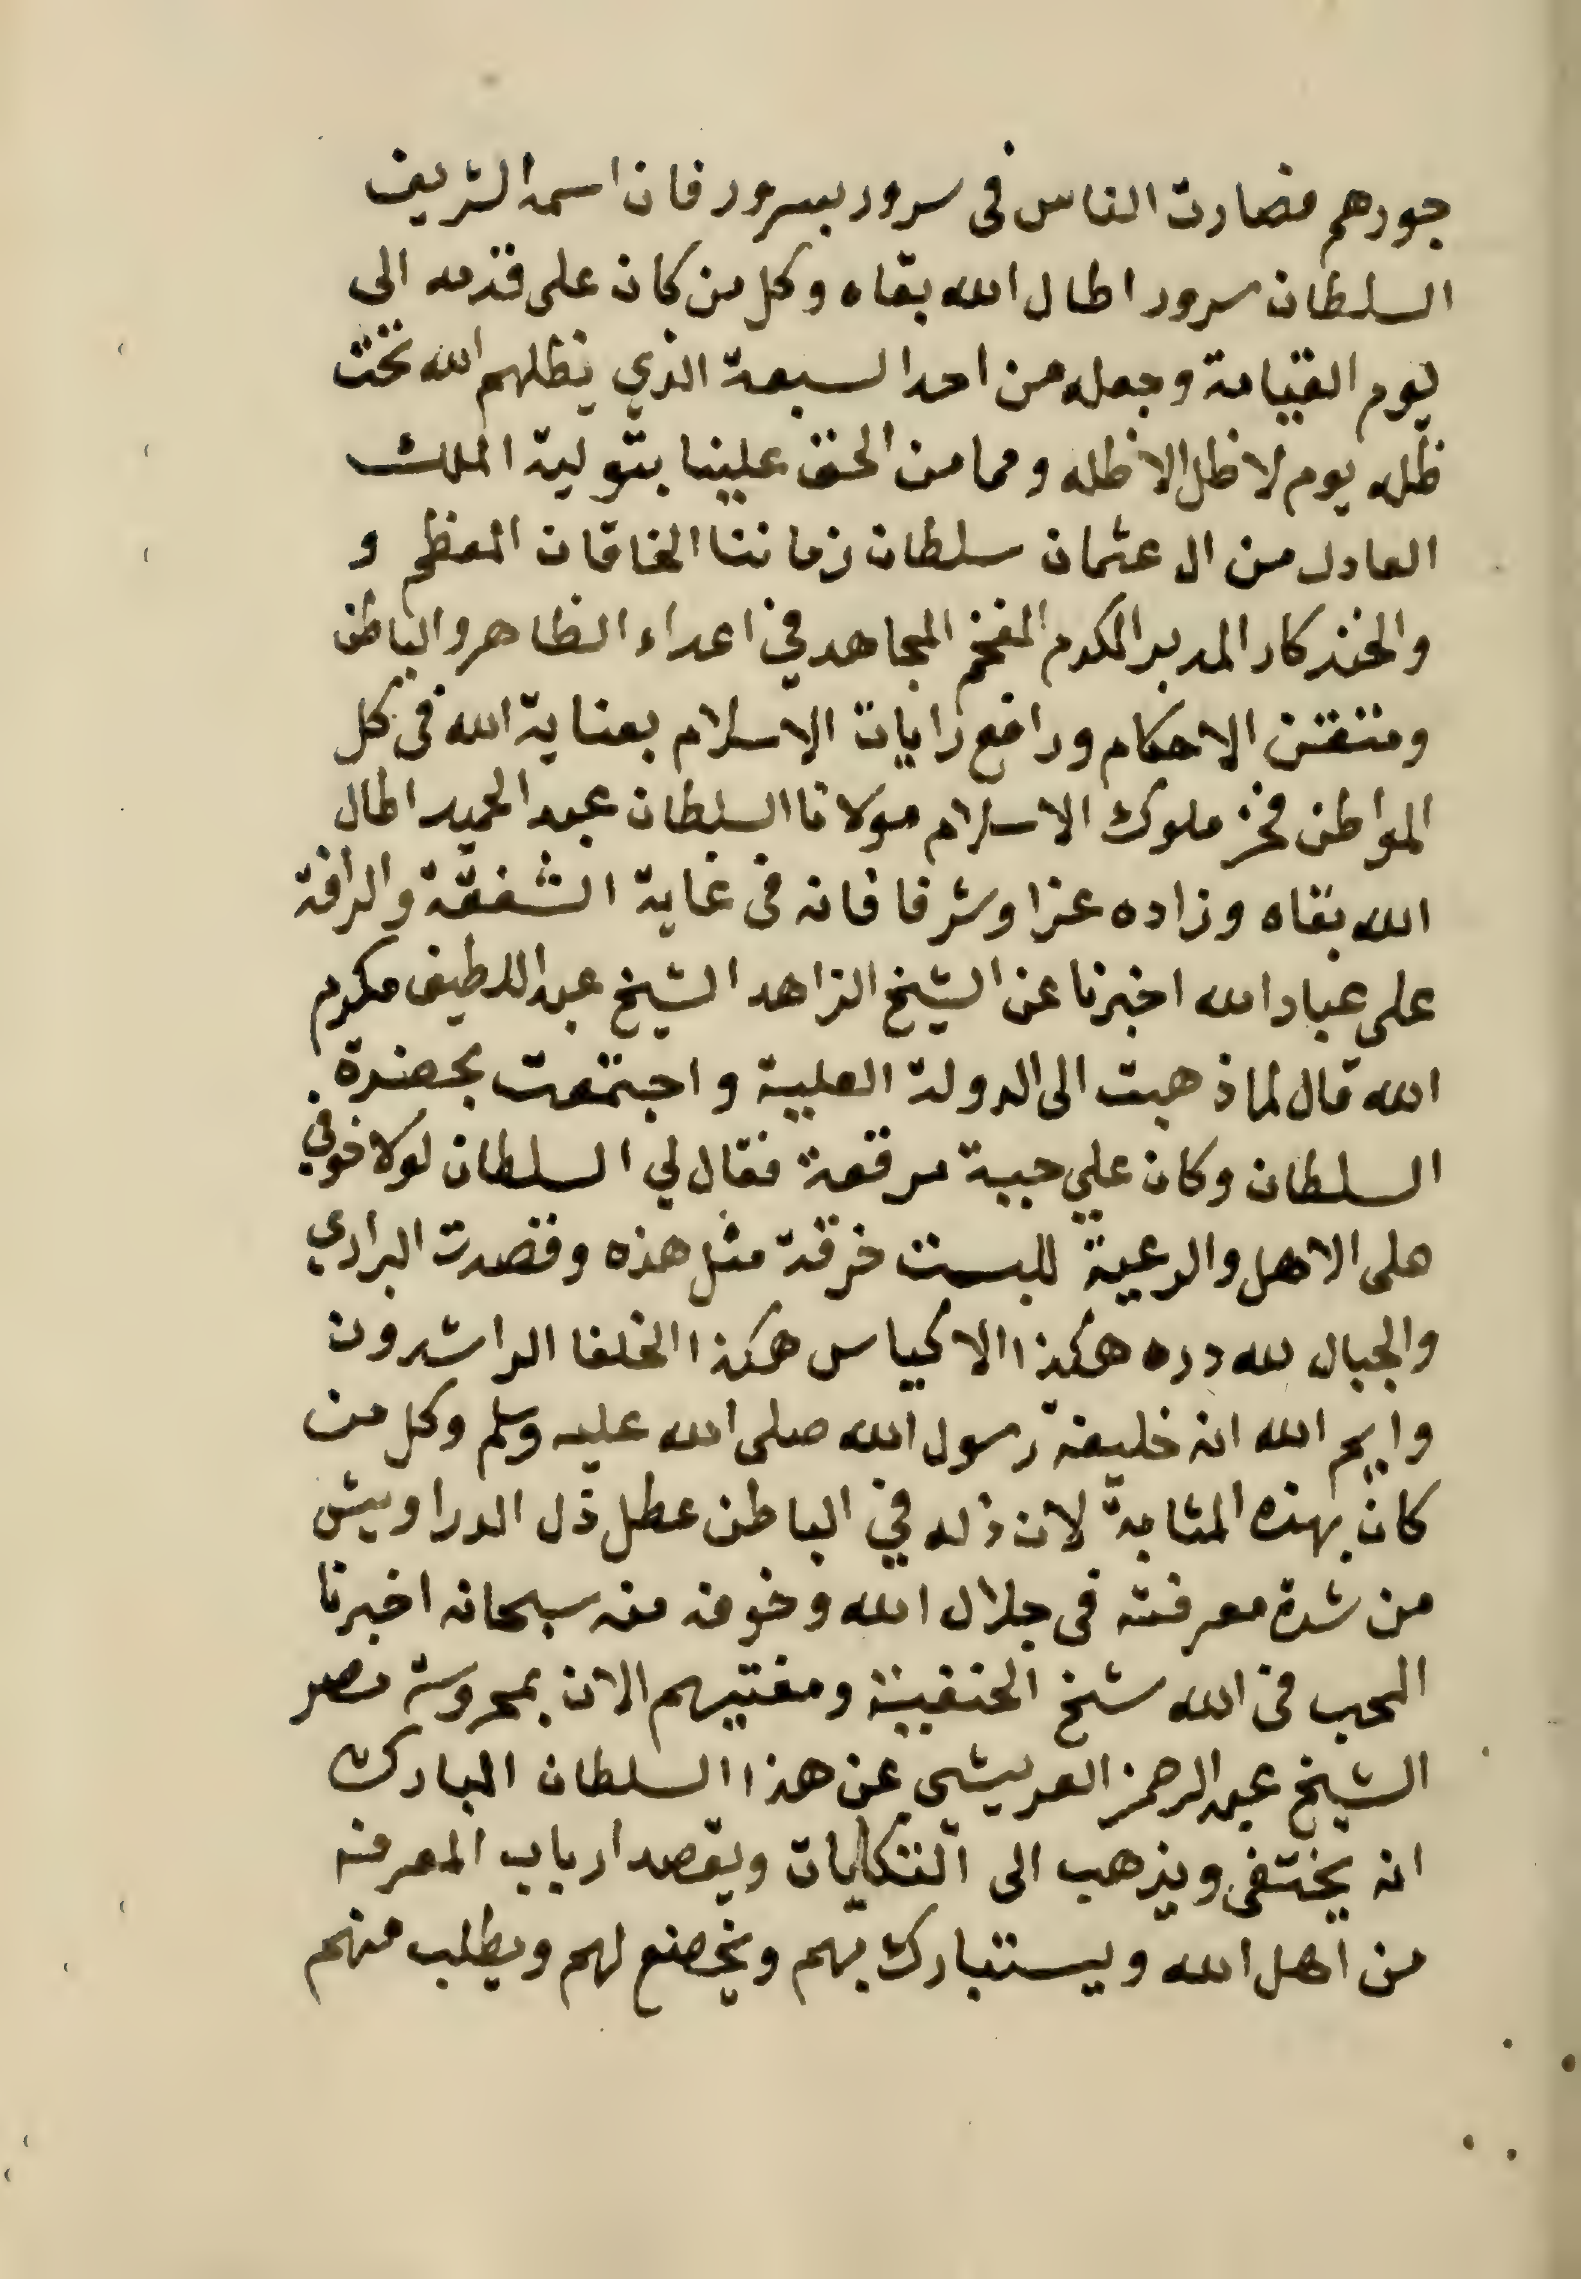 جورهم فصارت الناس فى سرور بسرور فان اسمه الشريف
السلطان سرور اطال الله بقاه وكل من كان على قدمه الى
يوم القيامة وجعله من احد السبعة الذي يظلهم الله تحت
ظله يوم لا ظل الا ظله ومما من الحق علينا بتولية الملك
العادل من ال عثمان سلطان زماننا الخاقان المعظم و
والخندكار المدبر المكرم المفخم المجاهد في اعداء الظاهر والباطن
ومتقن الاحكام ورافع رايات الاسلام بعناية الله فى كل
المواطن فخر ملوك الاسلام مولانا السلطان عبد الحميد اطال
الله بقاه وزاده عزا وشرفا فانه فى غاية الشفقة والرافة
على عباد الله اخبرنا عن الشيخ الزاهد الشيخ عبد اللطيف مكرم
الله قال لما ذهبت الى الدولة العلية واجتمعت بحضرة
السلطان وكان علي جبة مرقعة فقال لي السلطان لولا خوفي
على الاهل والرعية للبست خرقة مثل هذه وقصدت البراري
والجبال لله دره هكذا الاكياس هكذا الخلفا الراشدون
وايم الله انه خليفة رسول الله صلى الله عليه وسلم وكل من
كان بهذه المثابة لان ذله في الباطن عطل ذل الدراويش
من شدة معرفته فى جلال الله وخوفه منه سبحانه اخبرنا
المحب فى الله شيخ الحنفية ومفتيهم الان بمحروسة مصر
الشيخ عبد الرحمن العريشي عن هذا السلطان المبارك
انه يختفى ويذهب الى التكايات ويقصد ارباب المعرفة
من اهل الله ويستبارك بهم ويخضع لهم ويطلب منهم